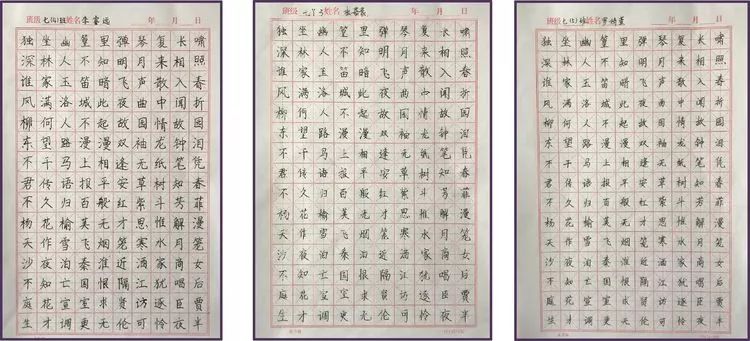 班级 姓名李睿远 年 月 日
独坐幽篁里弹琴复长啸
深林人不知明月来相照
谁家玉笛暗飞声散入春
风满洛城此夜曲中闻折
柳何人不起故园情故园
东望路漫漫双袖龙钟泪
不干马上相逢无纸笔凭
君传语报平安草树知春
不久归百般红紫斗芳菲
杨花榆荚无才思惟解漫
天作雪飞烟笼寒水月笼
沙夜泊秦淮近酒家商女
不知亡国恨隔江犹唱后
庭花宣室求贤访逐臣贾
生才调更无伦可怜夜半
班级 姓名 年 月 日
独坐幽篁里弹琴复长啸
深林人不知明月来相照
谁家玉笛暗飞声散入春
风满洛城此夜曲中闻折
柳何人不起故园情故园
东望路漫漫双袖龙钟泪
不干马上相逢无纸笔凭
君传语报平安草树知春
不久归百般红紫斗芳菲
杨花榆荚无才思惟解漫
天作雪飞烟笼寒水月笼
沙夜泊秦淮近酒家商女
不知亡国恨隔江犹唱后
庭花宣室求贤访逐臣贾
生才调更无伦可怜夜半
班级 姓名 年 月 日
独坐幽篁里弹琴复长啸
深林人不知明月来相照
谁家玉笛暗飞声散入春
风满洛城此夜曲中闻折
柳何人不起故园情故园
东望路漫漫双袖龙钟泪
不干马上相逢无纸笔凭
君传语报平安草树知春
不久归百般红紫斗芳菲
杨花榆荚无才思惟解漫
天作雪飞烟笼寒水月笼
沙夜泊秦淮近酒家商女
不知亡国恨隔江犹唱后
庭花宣室求贤访逐臣贾
生才调更无伦可怜夜半